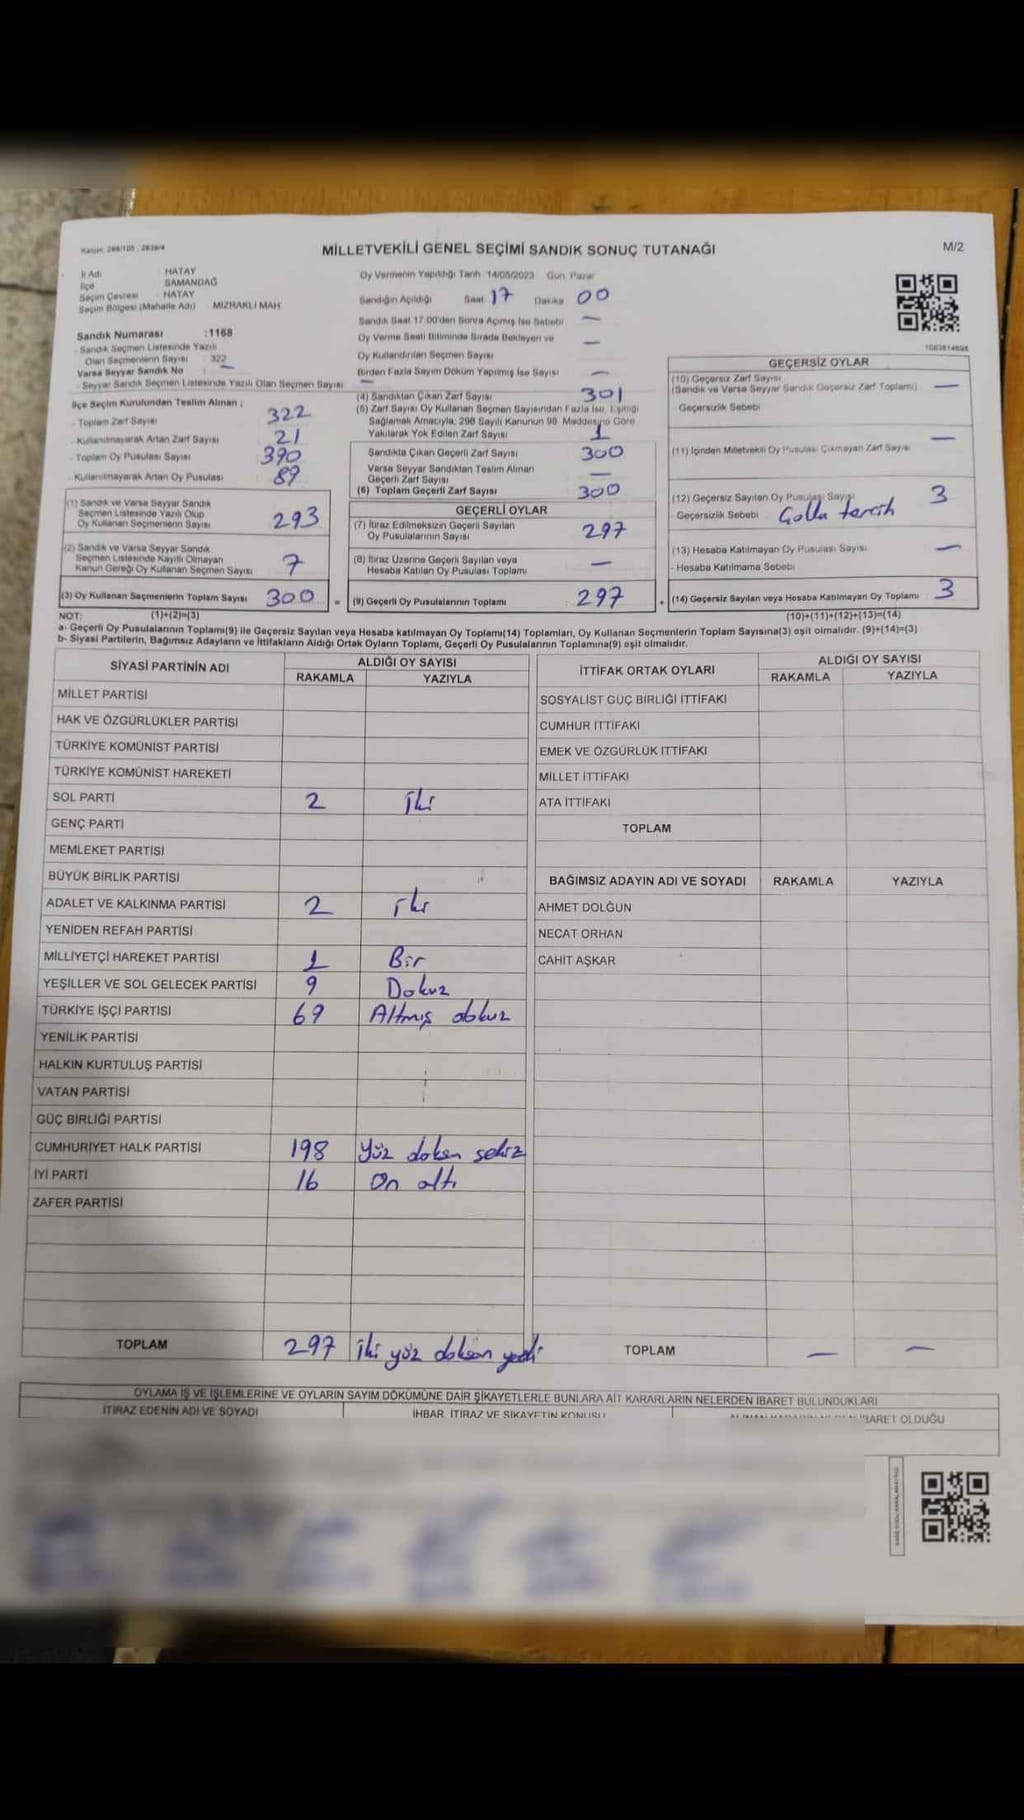 Kanun: 298/105 - 2839/4
MİLLETVEKİLİ GENEL SEÇİMİ SANDIK SONUÇ TUTANAĞI
M/2
İl Adı HATAY
İlçe SAMANDAĞ
Seçim Çevresi HATAY
Seçim Bölgesi (Mahalle Adı) MIZRAKLI MAH.
Sandık Numarası :1168
- Sandık Seçmen Listesinde Yazılı
Olan Seçmenlerin Sayısı : 322
Varsa Seyyar Sandık No : —
- Seyyar Sandık Seçmen Listesinde Yazılı Olan Seçmen Sayısı —
İlçe Seçim Kurulundan Teslim Alınan ;
- Toplam Zarf Sayısı 322
- Kullanılmayarak Artan Zarf Sayısı 21
- Toplam Oy Pusulası Sayısı 390
- Kullanılmayarak Artan Oy Pusulası 89
(1) Sandık ve Varsa Seyyar Sandık
Seçmen Listesinde Yazılı Olup
Oy Kullanan Seçmenlerin Sayısı 293
(2) Sandık ve Varsa Seyyar Sandık
Seçmen Listesinde Kayıtlı Olmayan
Kanun Gereği Oy Kullanan Seçmen Sayısı 7
(3) Oy Kullanan Seçmenlerin Toplam Sayısı 300 =
Oy Vermenin Yapıldığı Tarih :14/05/2023 Gün: Pazar
Sandığın Açıldığı Saat 17 Dakika 00
Sandık Saat 17:00'den Sonra Açılmış İse Sebebi —
Oy Verme Saati Bitiminde Sırada Bekleyen ve
Oy Kullandırılan Seçmen Sayısı —
Birden Fazla Sayım Döküm Yapılmış İse Sayısı —
(4) Sandıktan Çıkan Zarf Sayısı 301
(5) Zarf Sayısı Oy Kullanan Seçmen Sayısından Fazla İse, Eşitliği
Sağlamak Amacıyla, 298 Sayılı Kanunun 98. Maddesine Göre
Yakılarak Yok Edilen Zarf Sayısı 1
Sandıkta Çıkan Geçerli Zarf Sayısı 300
Varsa Seyyar Sandıktan Teslim Alınan
Geçerli Zarf Sayısı —
(6) Toplam Geçerli Zarf Sayısı 300
GEÇERLİ OYLAR
(7) İtiraz Edilmeksizin Geçerli Sayılan
Oy Pusulalarının Sayısı 297
(8) İtiraz Üzerine Geçerli Sayılan veya
Hesaba Katılan Oy Pusulası Toplamı —
(9) Geçerli Oy Pusulalarının Toplamı 297 +
1083814695
GEÇERSİZ OYLAR
(10) Geçersiz Zarf Sayısı
(Sandık ve Varsa Seyyar Sandık Geçersiz Zarf Toplamı) —
- Geçersizlik Sebebi
(11) İçinden Milletvekili Oy Pusulası Çıkmayan Zarf Sayısı —
(12) Geçersiz Sayılan Oy Pusulası Sayısı 3
- Geçersizlik Sebebi Çoklu tercih
(13) Hesaba Katılmayan Oy Pusulası Sayısı —
- Hesaba Katılmama Sebebi
(14) Geçersiz Sayılan veya Hesaba Katılmayan Oy Toplamı 3
NOT: (1)+(2)=(3) (10)+(11)+(12)+(13)=(14)
a- Geçerli Oy Pusulalarının Toplamı(9) ile Geçersiz Sayılan veya Hesaba katılmayan Oy Toplamı(14) Toplamları, Oy Kullanan Seçmenlerin Toplam Sayısına(3) eşit olmalıdır. (9)+(14)=(3)
b- Siyasi Partilerin, Bağımsız Adayların ve İttifakların Aldığı Ortak Oyların Toplamı, Geçerli Oy Pusulalarının Toplamına(9) eşit olmalıdır.
SİYASİ PARTİNİN ADI ALDIĞI OY SAYISI
RAKAMLA YAZIYLA
MİLLET PARTİSİ
HAK VE ÖZGÜRLÜKLER PARTİSİ
TÜRKİYE KOMÜNİST PARTİSİ
TÜRKİYE KOMÜNİST HAREKETİ
SOL PARTİ 2 İki
GENÇ PARTİ
MEMLEKET PARTİSİ
BÜYÜK BİRLİK PARTİSİ
ADALET VE KALKINMA PARTİSİ 2 İki
YENİDEN REFAH PARTİSİ
MİLLİYETÇİ HAREKET PARTİSİ 1 Bir
YEŞİLLER VE SOL GELECEK PARTİSİ 9 Dokuz
TÜRKİYE İŞÇİ PARTİSİ 69 Altmış dokuz
YENİLİK PARTİSİ
HALKIN KURTULUŞ PARTİSİ
VATAN PARTİSİ
GÜÇ BİRLİĞİ PARTİSİ
CUMHURİYET HALK PARTİSİ 198 Yüz doksan sekiz
İYİ PARTİ 16 On altı
ZAFER PARTİSİ
TOPLAM 297 İki yüz doksan yedi
İTTİFAK ORTAK OYLARI ALDIĞI OY SAYISI
RAKAMLA YAZIYLA
SOSYALİST GÜÇ BİRLİĞİ İTTİFAKI
CUMHUR İTTİFAKI
EMEK VE ÖZGÜRLÜK İTTİFAKI
MİLLET İTTİFAKI
ATA İTTİFAKI
TOPLAM
BAĞIMSIZ ADAYIN ADI VE SOYADI RAKAMLA YAZIYLA
AHMET DOLĞUN
NECAT ORHAN
CAHİT AŞKAR
TOPLAM — —
OYLAMA İŞ VE İŞLEMLERİNE VE OYLARIN SAYIM DÖKÜMÜNE DAİR ŞİKAYETLERLE BUNLARA AİT KARARLARIN NELERDEN İBARET BULUNDUKLARI
İTİRAZ EDENİN ADI VE SOYADI
İHBAR, İTİRAZ VE ŞİKAYETİN KONUSU
İBARET OLDUĞU